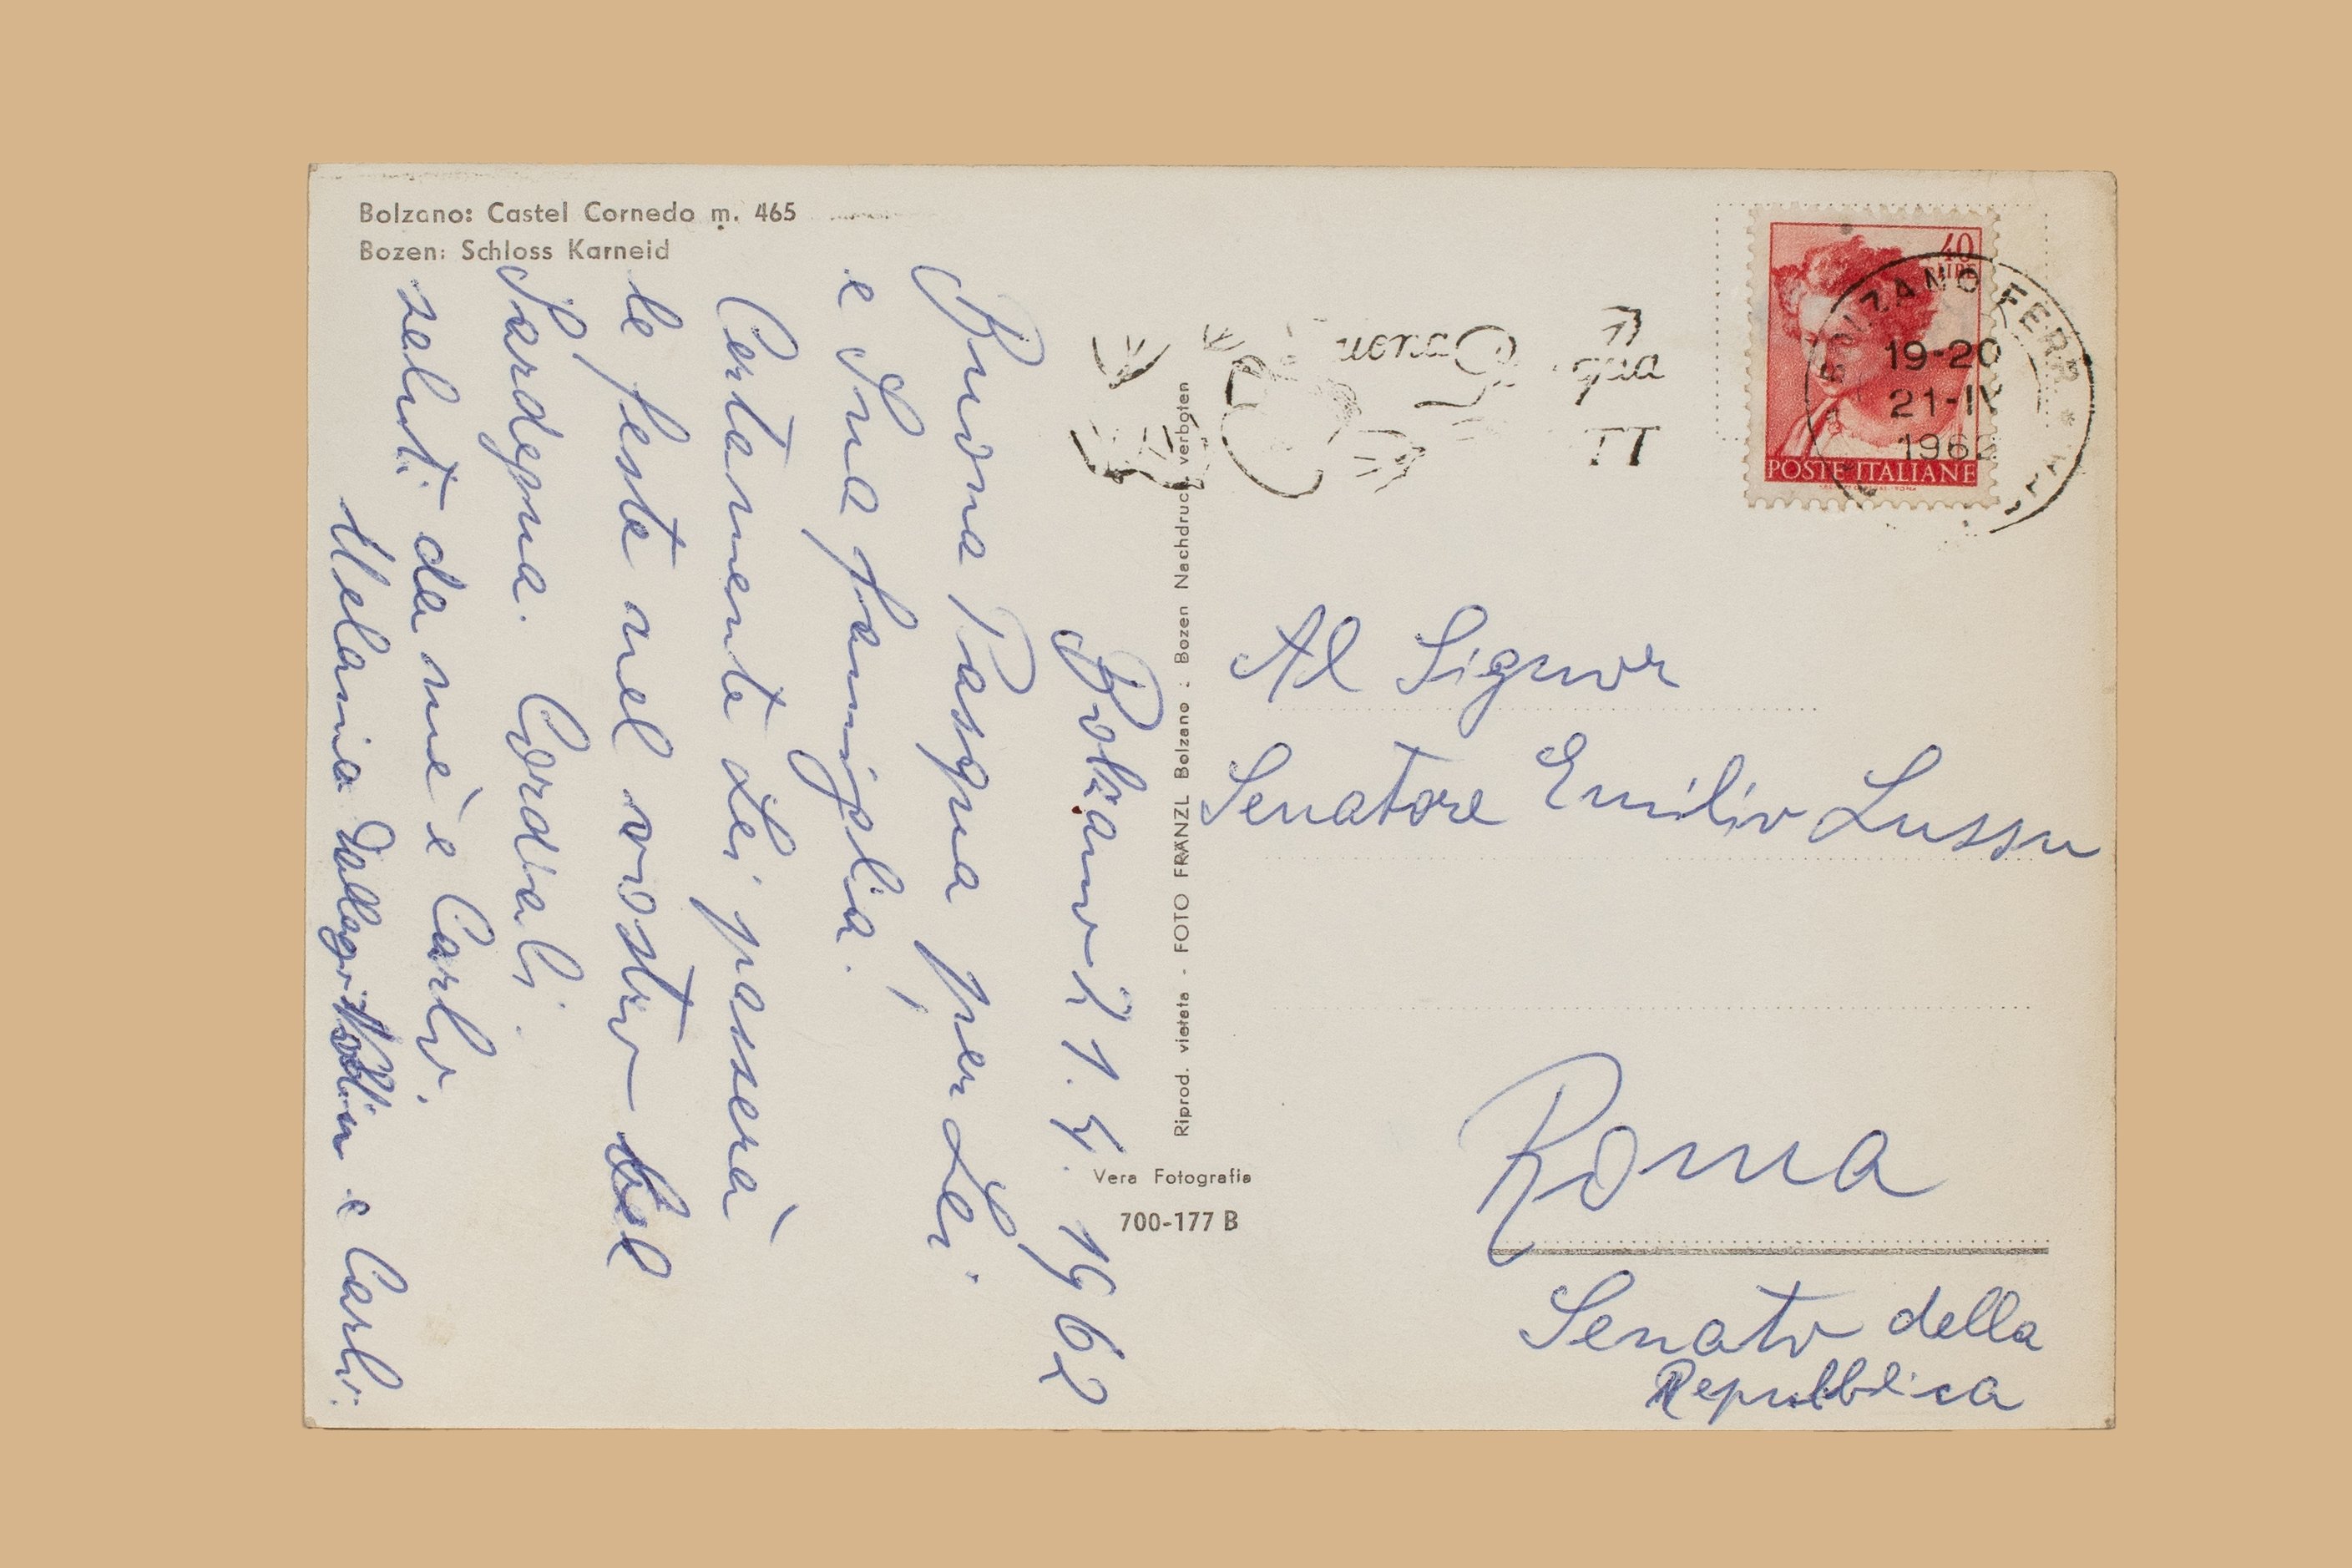 Bolzano: Castel Cornedo m. 465
Bozen: Schloss Karneid
Bolzano 21.4.1962
Buona Pasqua per Lei
e Sua famiglia.
Certamente Lei passerà
le feste nel vostro bel
Sardegna. Cordiali
saluti da me è Carlo.
Melania e Carlo.
Riprod. vietata - FOTO FRÄNZL Bolzano - Bozen Nachdruck verboten
Vera Fotografia
700-177 B
40
LIRE
POSTE ITALIANE
BOLZANO FERR
19-20
21-IV
1962
Al Signor
Senatore Emilio Lussu
Roma
Senato della
Repubblica